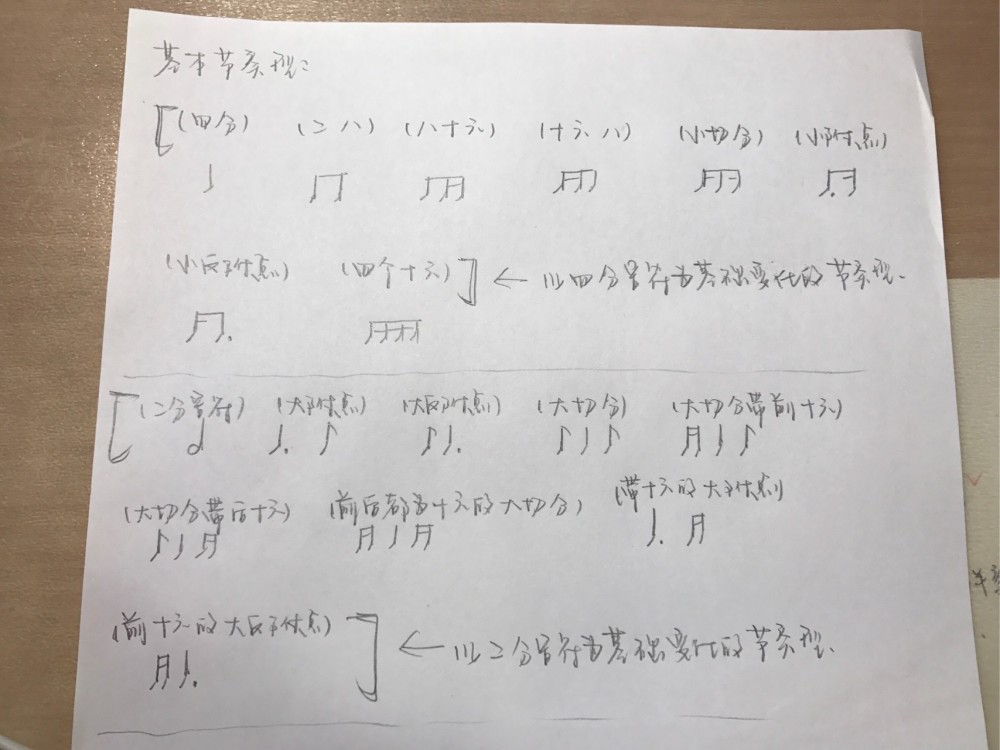 基本节奏型：
（四分） （二八） （八十六） （十六八） （小切分） （小附点）
（小反附点） （四个十六） ← 以四分音符为基础变化的节奏型.
（二分音符） （大附点） （大反附点） （大切分） （大切分带前十六）
（大切分带后十六） （前后都为十六的大切分） （带十六的大附点）
（前十六的大反附点） ← 以二分音符为基础变化的节奏型.